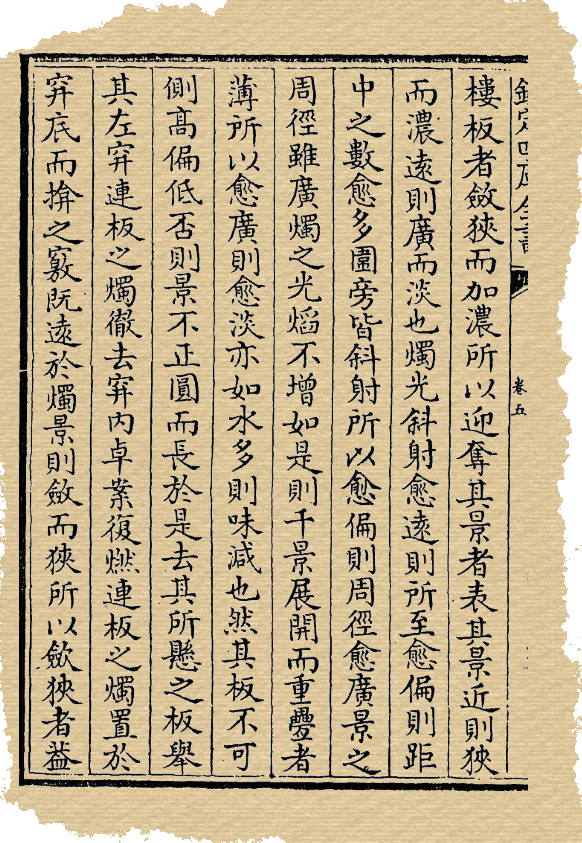 欽定四庫全書
卷五
樓板者斂狹而加濃所以迎奪其景者表其景近則狹
而濃遠則廣而淡也燭光斜射愈遠則所至愈偏則距
中之數愈多圍旁皆斜射所以愈偏則周徑愈廣景之
周徑雖廣燭之光熖不增如是則千景展開而重疊者
薄所以愈廣則愈淡亦如水多則味減也然其板不可
側高偏低否則景不正圓而長於是去其所懸之板舉
其左穽連板之燭徹去穽內卓案復燃連板之燭置於
穽底而揜之竅既遠於燭景則斂而狹所以歛狹者葢